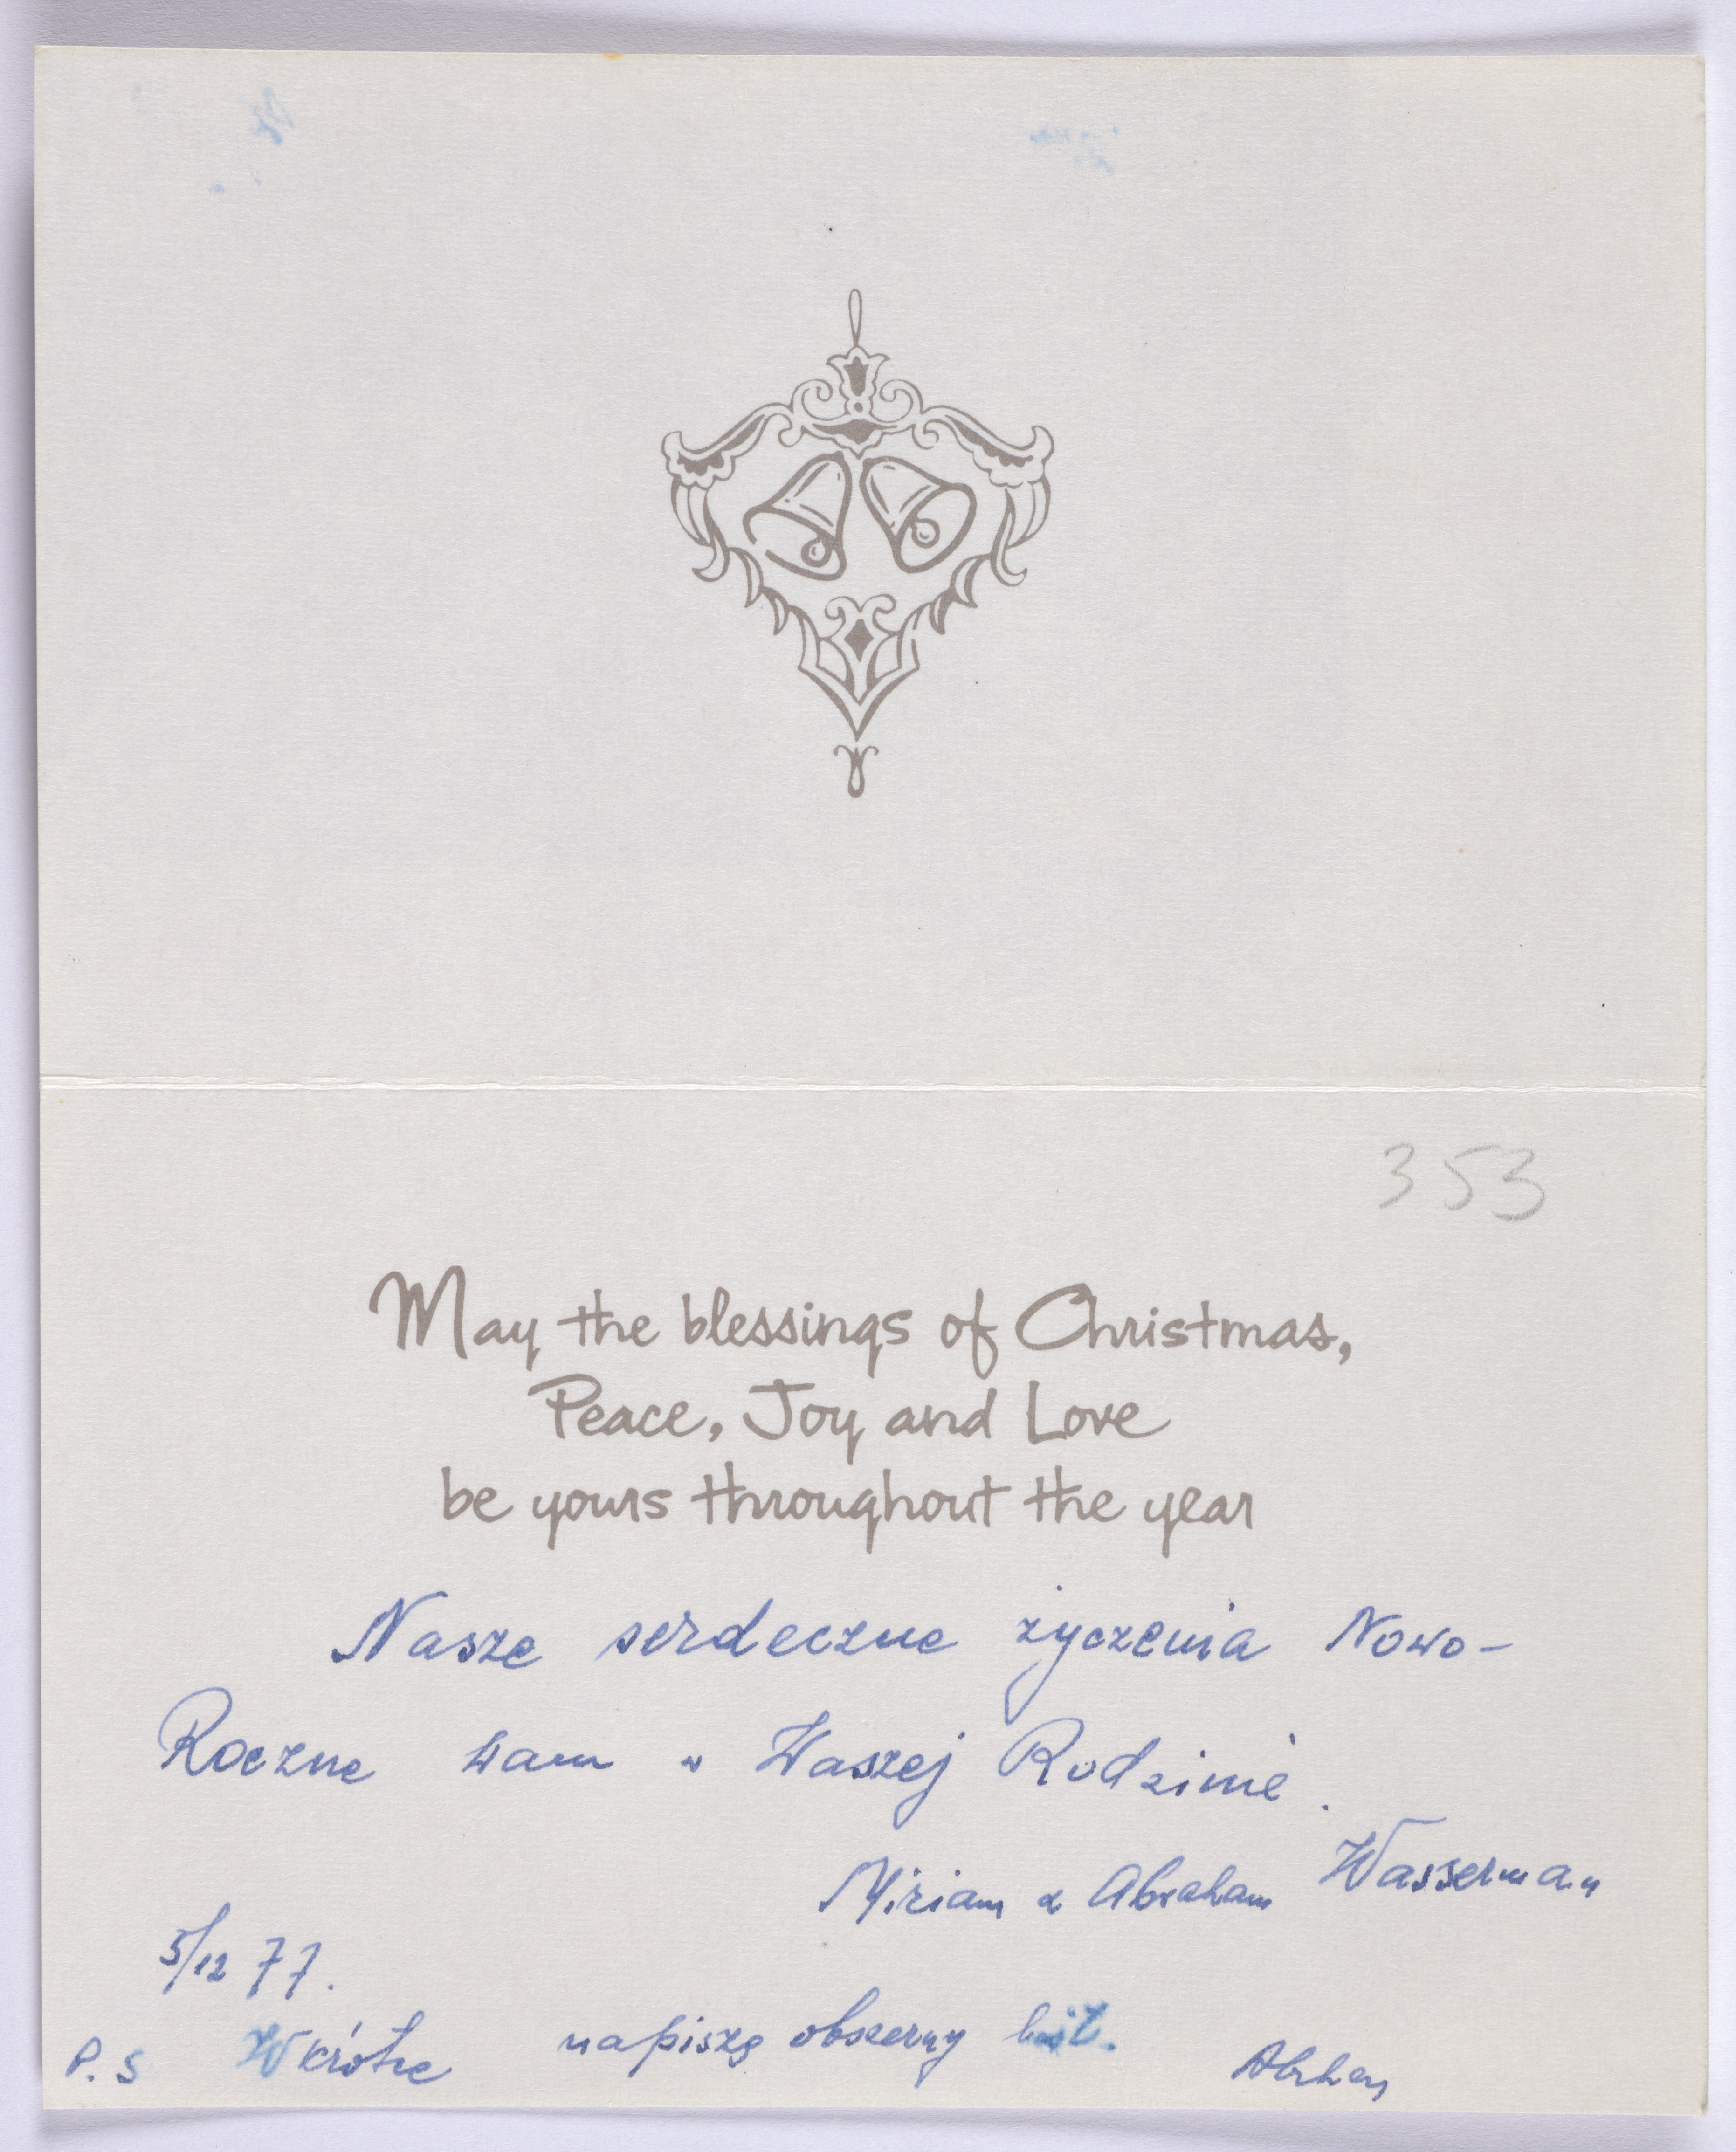 353
May the blessings of Christmas,
Peace, Joy and Love
be yours throughout the year
Nasze serdeczne życzenia Nowo-
Roczne wam w Waszej Rodzinie.
Miriam & Abraham Wasserman
5/12 77.
P.S Wkrótce napiszę obszerny list.